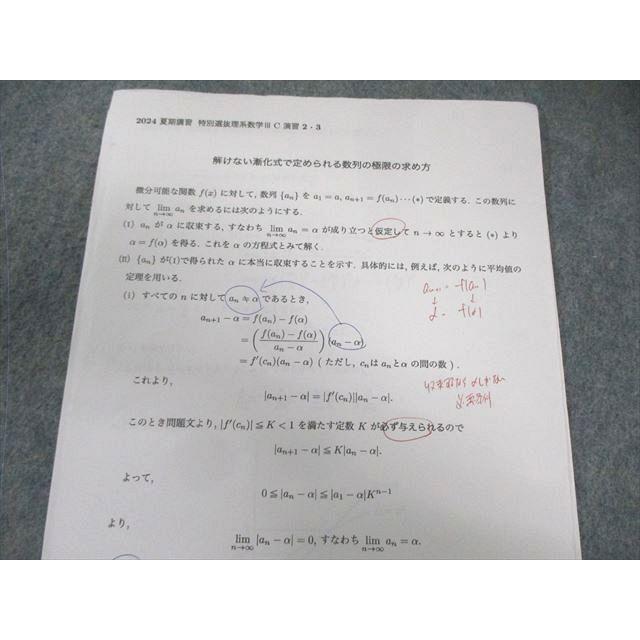 2024 夏期講習 特別選抜理系数学Ⅲ C 演習 2・3
解けない漸化式で定められる数列の極限の求め方
微分可能な関数 f(x) に対して, 数列 {aₙ} を a₁ = a, aₙ₊₁ = f(aₙ)⋯(*) で定義する. この数列に
対して lim_{n→∞} aₙ を求めるには次のようにする.
(I) aₙ が α に収束する, すなわち lim_{n→∞} aₙ = α が成り立つと仮定して n → ∞ とすると (*) より
α = f(α) を得る. これを α の方程式とみて解く.
(II) {aₙ} が(1)で得られた α に本当に収束することを示す. 具体的には, 例えば, 次のように平均値の
定理を用いる.
(i) すべての n に対して aₙ ≒ α であるとき,
aₙ₊₁ = f(aₙ)
↓ ↓
α = f(α)
aₙ₊₁ − α = f(aₙ) − f(α)
= ( (f(aₙ) − f(α)) / (aₙ − α) ) (aₙ − α)
= f′(cₙ)(aₙ − α) ( ただし, cₙはaₙとα の間の数 ).
これより,
|aₙ₊₁ − α| = |f′(cₙ)||aₙ − α|.
必要条件
このとき問題文より, |f′(cₙ)| ≦ K < 1 を満たす定数 K が必ず与えられるので
|aₙ₊₁ − α| ≦ K|aₙ − α|.
よって,
0 ≦ |aₙ − α| ≦ |a₁ − α|Kⁿ⁻¹
より,
lim_{n→∞} |aₙ − α| = 0, すなわち lim_{n→∞} aₙ = α.